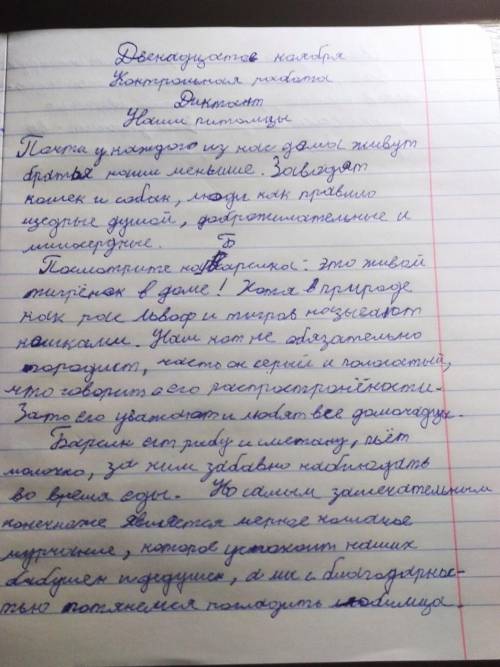 Двенадцатое ноября
Контрольная работа
Диктант
Наши питомцы
Почти у каждого из нас дома живут
братья наши меньшие. Заводят
кошек и собак, люди как правило
щедрые душой, доброжелательные и
милосердные.
Посмотрите на Барсика: это живой
тигрёнок в доме! Хотя в природе
как рас львоф и тигров называют
кошками. Наш кот не обязательно
породист, часть он серый и полосатый,
что говорит о его распространёности.
Зато его уважают и любят все домочадцы.
Барсик ест рибу и сметану, пьёт
молочко, за ним забавно наблюдать
во время еды. Но самым замечательным
конечноже является мерное кошачье
мурчание, которое успокоит наших
бабушек и дедушек, а мы с благодарнос-
тью потянемся погладить любимца.